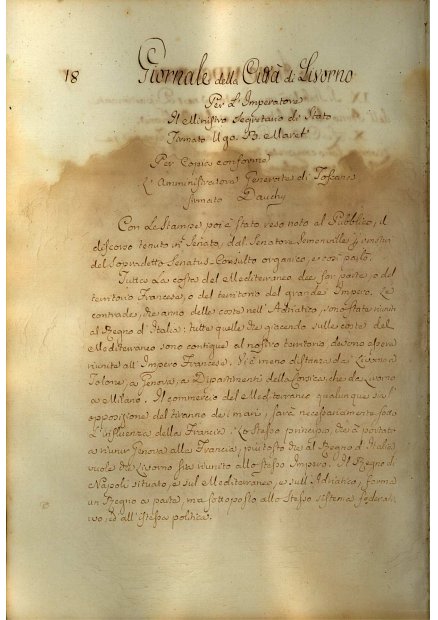 18 Giornale della Città di Livorno
Per L'Imperatore
Il Ministro Segretario di Stato
Firmato Ugo. B. Maret
Per Copia conforme
L'Amministratore Generale di Toscana
firmato Dauchy
Con Le Stampe poi è Stato reso noto al Pubblico, il
discorso tenuto in Senato, dal Senatore Semonville
del Sopradetto Senatus Consulto organico, e così parlò.
Tutta La costa del Mediterraneo dee far parte, o del
territorio Francese, o del territorio del grande Impero. Le
contrade, che anno delle coste nell'Adriatico, sono State riunite
al Regno d'Italia: tutte quelle che giacendo sulle coste del
Mediterraneo sono contigue al nostro territorio devono essere
riunite all'Impero Francese. Vi è meno distanza da Livorno a
Tolone, a Genova, ai Dipartimenti della Corsica, che da Livorno
a Milano. Il commercio del Mediterraneo qualunque sia
opposizione del tiranno dei mari, sarà necessariamente sotto
L'influenza della Francia. Lo Stesso principio, che à portato
a riunir Genova alla Francia, piuttosto che al Regno d'Italia
vuole che Livorno sia riunito allo stesso Impero. Il Regno di
Napoli situato, e sul Mediterraneo, e sull'Adriatico, forma
un Regno a parte, ma sottoposto allo Stesso sistema federati,
vo, ed all'istessa politica.